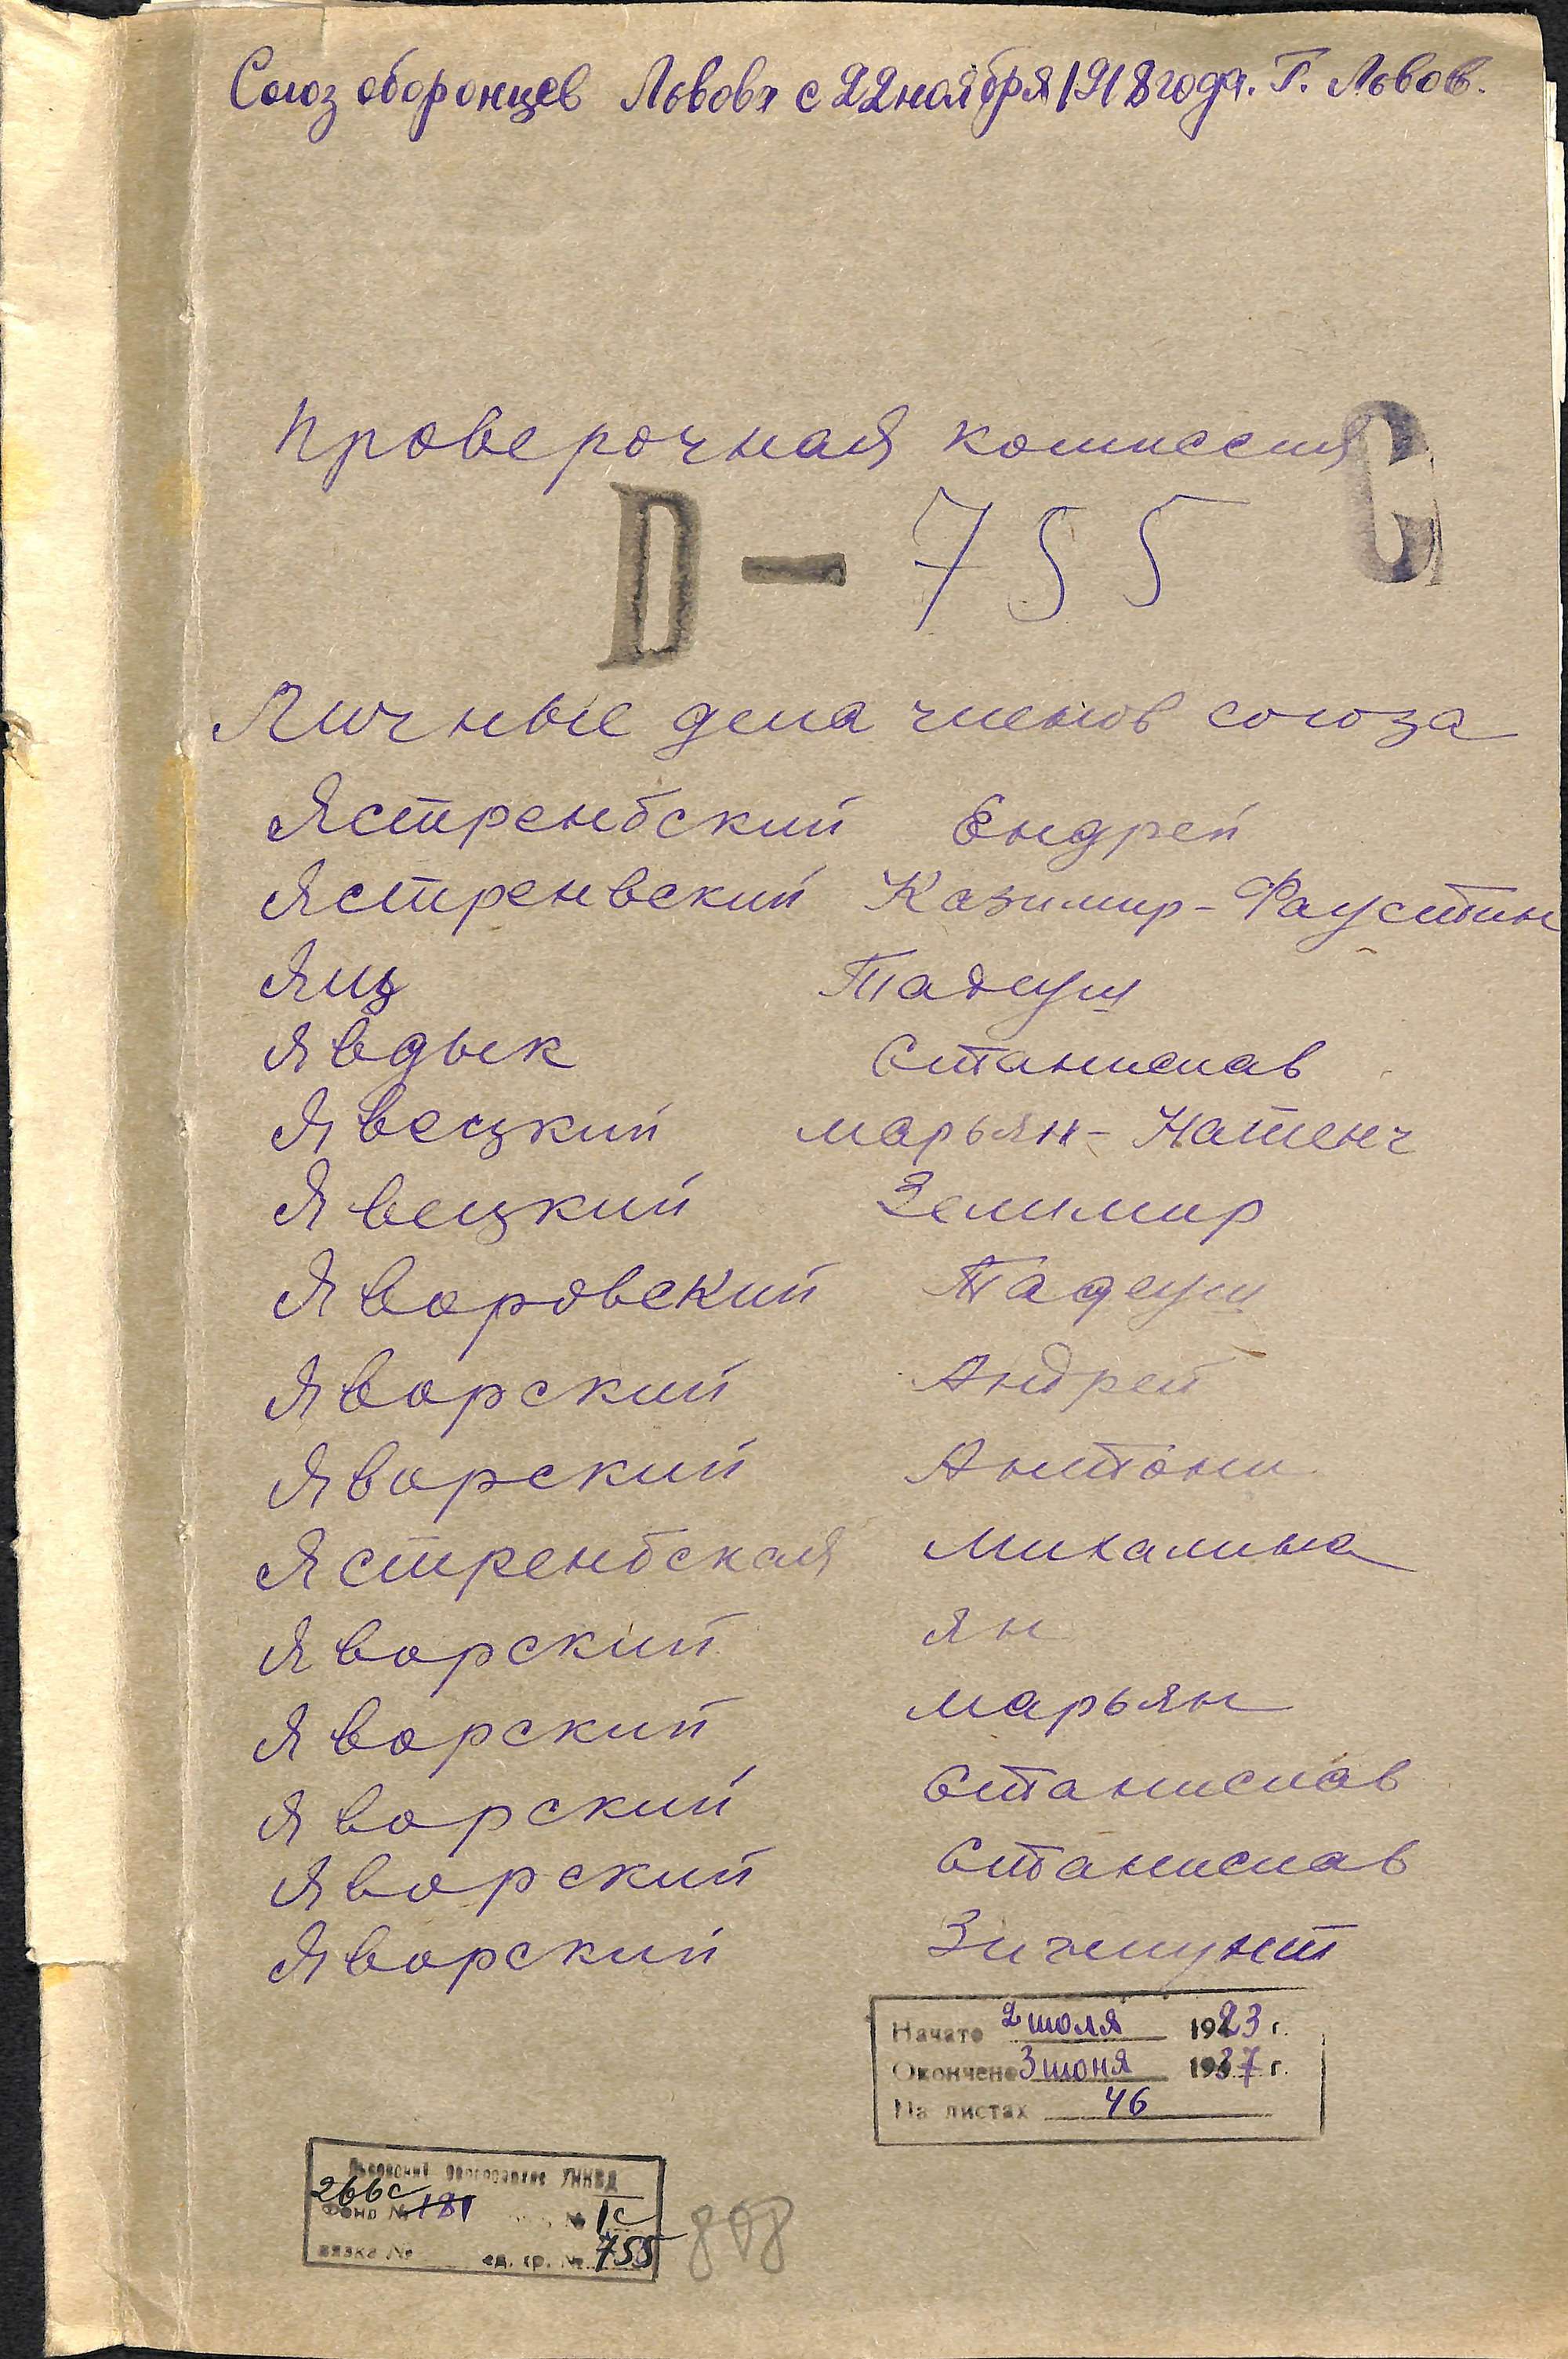 Союз оборонцев Львова с 22 ноября 1918 года. Г. Львов.
Проверочная комиссия
С
D - 755
Личные дела членов союза
Ястрембский Ендрей
Ястремвский Казимир-Фаустин
Яц Тадеуш
Явдык Станислав
Явецкий Марьян-
Явецкий Земимир
Яворовский Тадеуш
Яворский Андрей
Яворский Антони
Ястрембская Михалина
Яворский Ян
Яворский Марьян
Яворский Станислав
Яворский Станислав
Яворский Зигмунт
Начато 2 июля 1923 г.
Окончено 3 июня 1937 г.
На листах 46
УНКВД
266с
Фонд № 181 № 1с
вязка № ед. хр. № 755
808